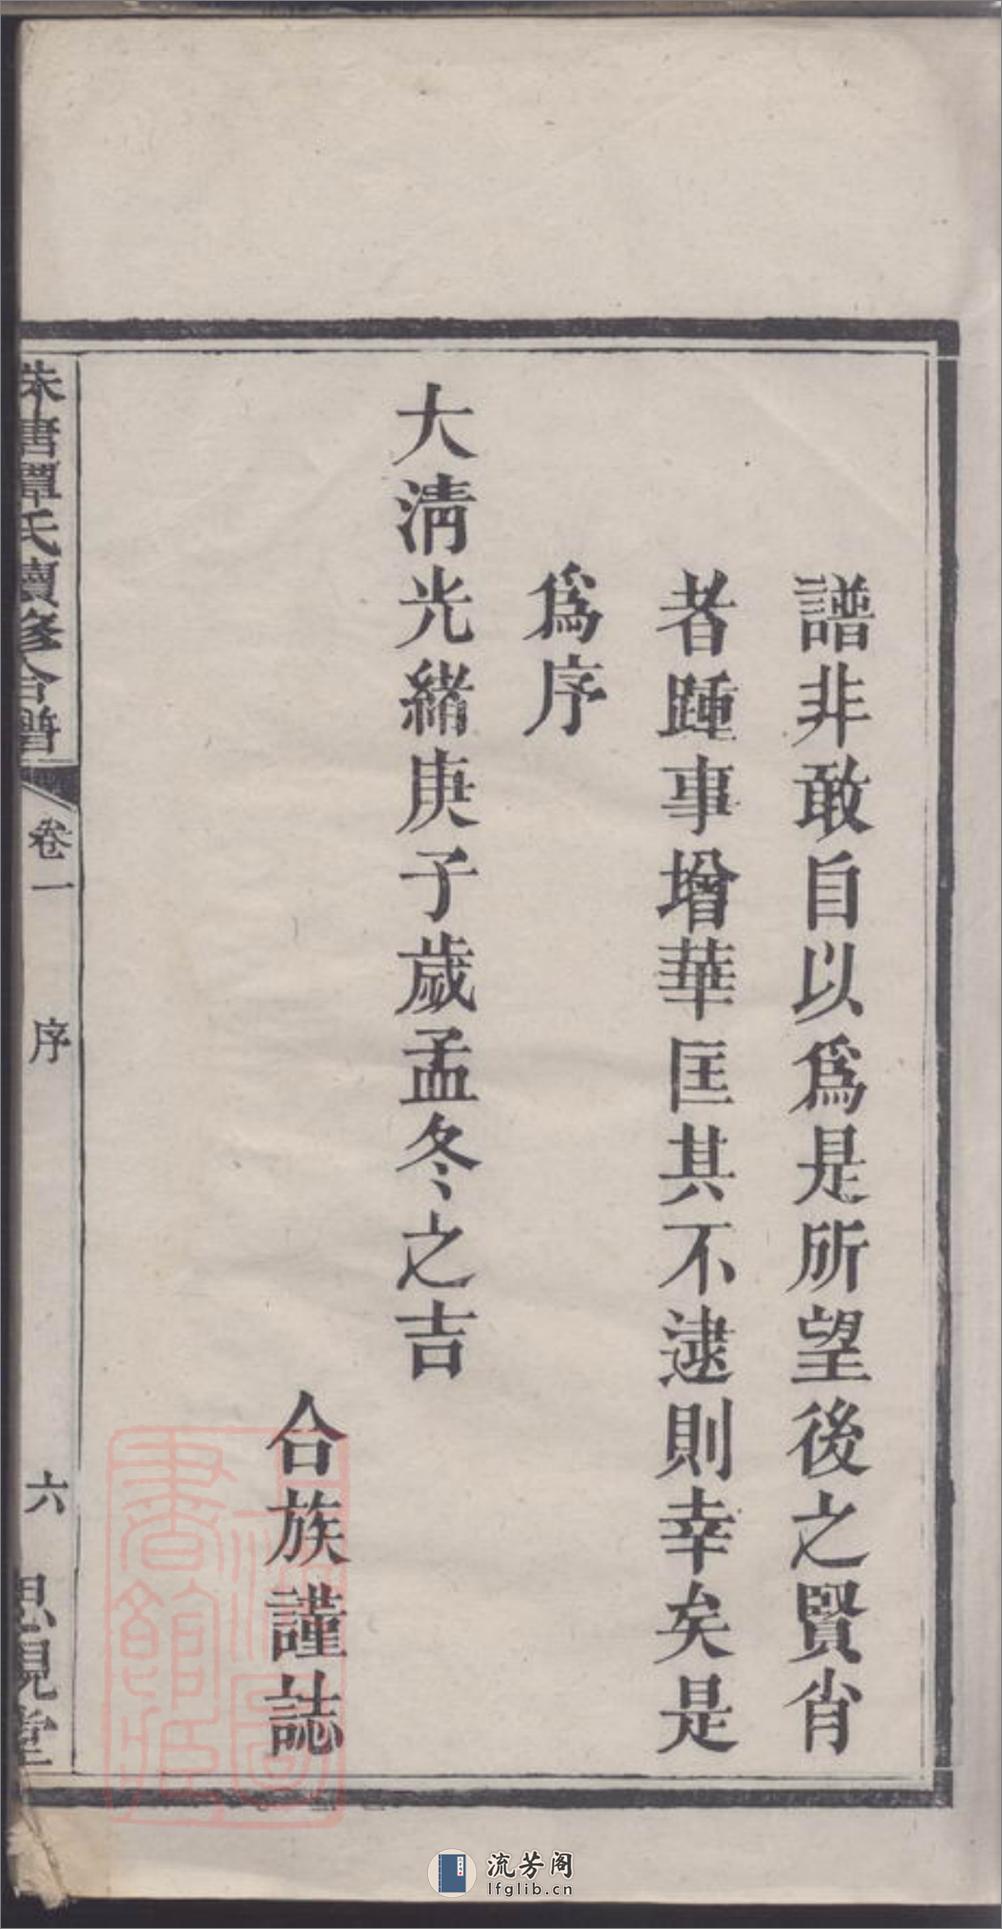 譜非敢自以爲是所望後之賢肖
者踵事增華匡其不逮則幸矣是
爲序
大淸光緒庚子歲孟冬之吉
合族謹誌
朱唐譚氏續修合譜 卷一 序 六 思覌堂
書館
流芳阁
lfglib.cn